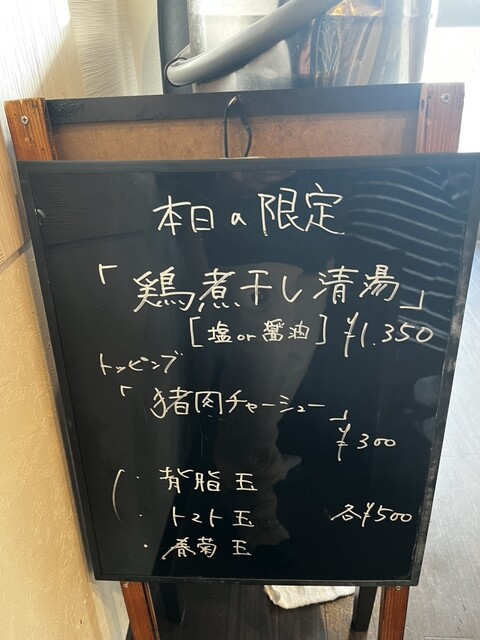 本日の限定
「鶏煮干し清湯」
[塩or醤油] ¥1.350
トッピング
「猪肉チャーシュー」
¥300
・背脂玉
・トマト玉 各¥500
・春菊玉